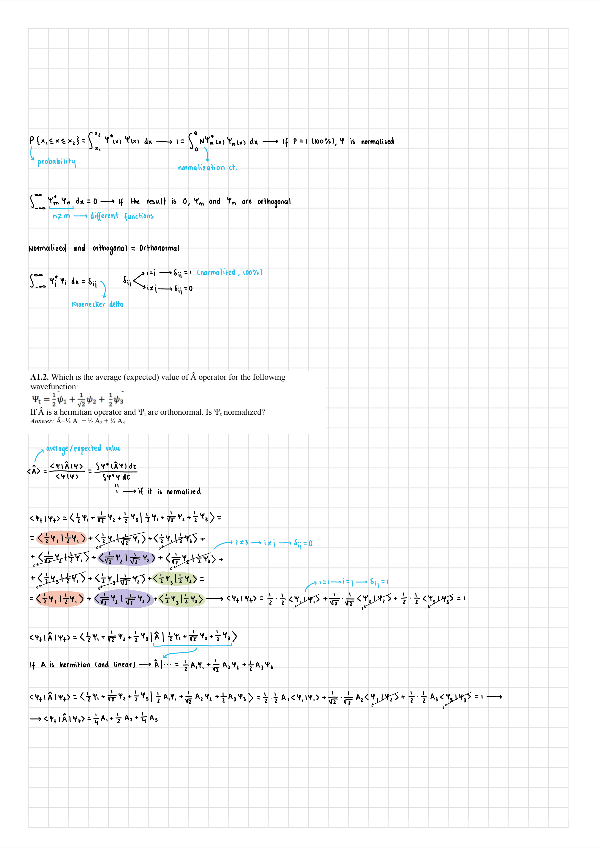 P{x₁ ≤ x ≤ x₂} = ∫ₓ₁ˣ² Ψ*(x) Ψ(x) dx ⟶ 1 = ∫₀ᵃ NΨₙ*(x) Ψₙ(x) dx ⟶ If P = 1 (100%), Ψ is normalized
probability
normalization ct.
∫₋∞^∞ Ψₘ* Ψₙ dx = 0 ⟶ If the result is 0, Ψₘ and Ψₙ are orthogonal
n≠m ⟶ different functions
Normalized and orthogonal = Orthonormal
∫₋∞^∞ Ψⱼ* Ψᵢ dx = δᵢⱼ
δᵢⱼ i=j ⟶ δᵢⱼ = 1 (normalized, 100%)
i≠j ⟶ δᵢⱼ = 0
Kroenecker delta
A1.2. Which is the average (expected) value of Â operator for the following
wavefunction:
Ψₜ = 1/2 ψ₁ + 1/√2 ψ₂ + 1/2 ψ₃
If Â is a hermitian operator and Ψᵢ are orthonormal. Is Ψₜ normalized?
Answer: Ā=¼ A₁ + ½ A₂ + ¼ A₃
average/expected value
⟨Â⟩ = ⟨Ψ|Â|Ψ⟩ / ⟨Ψ|Ψ⟩ = ∫Ψ*(ÂΨ)dτ / ∫Ψ*Ψ dτ
1 ⟶ if it is normalized
⟨Ψₜ|Ψₜ⟩ = ⟨1/2 Ψ₁ + 1/√2 Ψ₂ + 1/2 Ψ₃ | 1/2 Ψ₁ + 1/√2 Ψ₂ + 1/2 Ψ₃⟩ =
= ⟨1/2 Ψ₁ | 1/2 Ψ₁⟩ + ⟨1/2 Ψ₁ | 1/√2 Ψ₂⟩ + ⟨1/2 Ψ₁ | 1/2 Ψ₃⟩ +
+ ⟨1/√2 Ψ₂ | 1/2 Ψ₁⟩ + ⟨1/√2 Ψ₂ | 1/√2 Ψ₂⟩ + ⟨1/√2 Ψ₂ | 1/2 Ψ₃⟩ +
i≠j ⟶ δᵢⱼ=0
+ ⟨1/2 Ψ₃ | 1/2 Ψ₁⟩ + ⟨1/2 Ψ₃ | 1/√2 Ψ₂⟩ + ⟨1/2 Ψ₃ | 1/2 Ψ₃⟩ =
i=j ⟶ δᵢⱼ=1
= ⟨1/2 Ψ₁ | 1/2 Ψ₁⟩ + ⟨1/√2 Ψ₂ | 1/√2 Ψ₂⟩ + ⟨1/2 Ψ₃ | 1/2 Ψ₃⟩ ⟶ ⟨Ψₜ|Ψₜ⟩ = 1/2 · 1/2 ⟨Ψ₁|Ψ₁⟩ + 1/√2 · 1/√2 ⟨Ψ₂|Ψ₂⟩ + 1/2 · 1/2 ⟨Ψ₃|Ψ₃⟩ = 1
⟨Ψₜ|Â|Ψₜ⟩ = ⟨1/2 Ψ₁ + 1/√2 Ψ₂ + 1/2 Ψ₃ | Â | 1/2 Ψ₁ + 1/√2 Ψ₂ + 1/2 Ψ₃⟩
If A is hermitian (and linear) ⟶ Â|··· = 1/2 A₁Ψ₁ + 1/√2 A₂Ψ₂ + 1/2 A₃Ψ₃
⟨Ψₜ|Â|Ψₜ⟩ = ⟨1/2 Ψ₁ + 1/√2 Ψ₂ + 1/2 Ψ₃ | 1/2 A₁Ψ₁ + 1/√2 A₂Ψ₂ + 1/2 A₃Ψ₃⟩ = 1/2 · 1/2 A₁⟨Ψ₁|Ψ₁⟩ + 1/√2 · 1/√2 A₂⟨Ψ₂|Ψ₂⟩ + 1/2 · 1/2 A₃⟨Ψ₃|Ψ₃⟩ = 1 ⟶
⟶ ⟨Ψₜ|Â|Ψₜ⟩ = 1/4 A₁ + 1/2 A₂ + 1/4 A₃